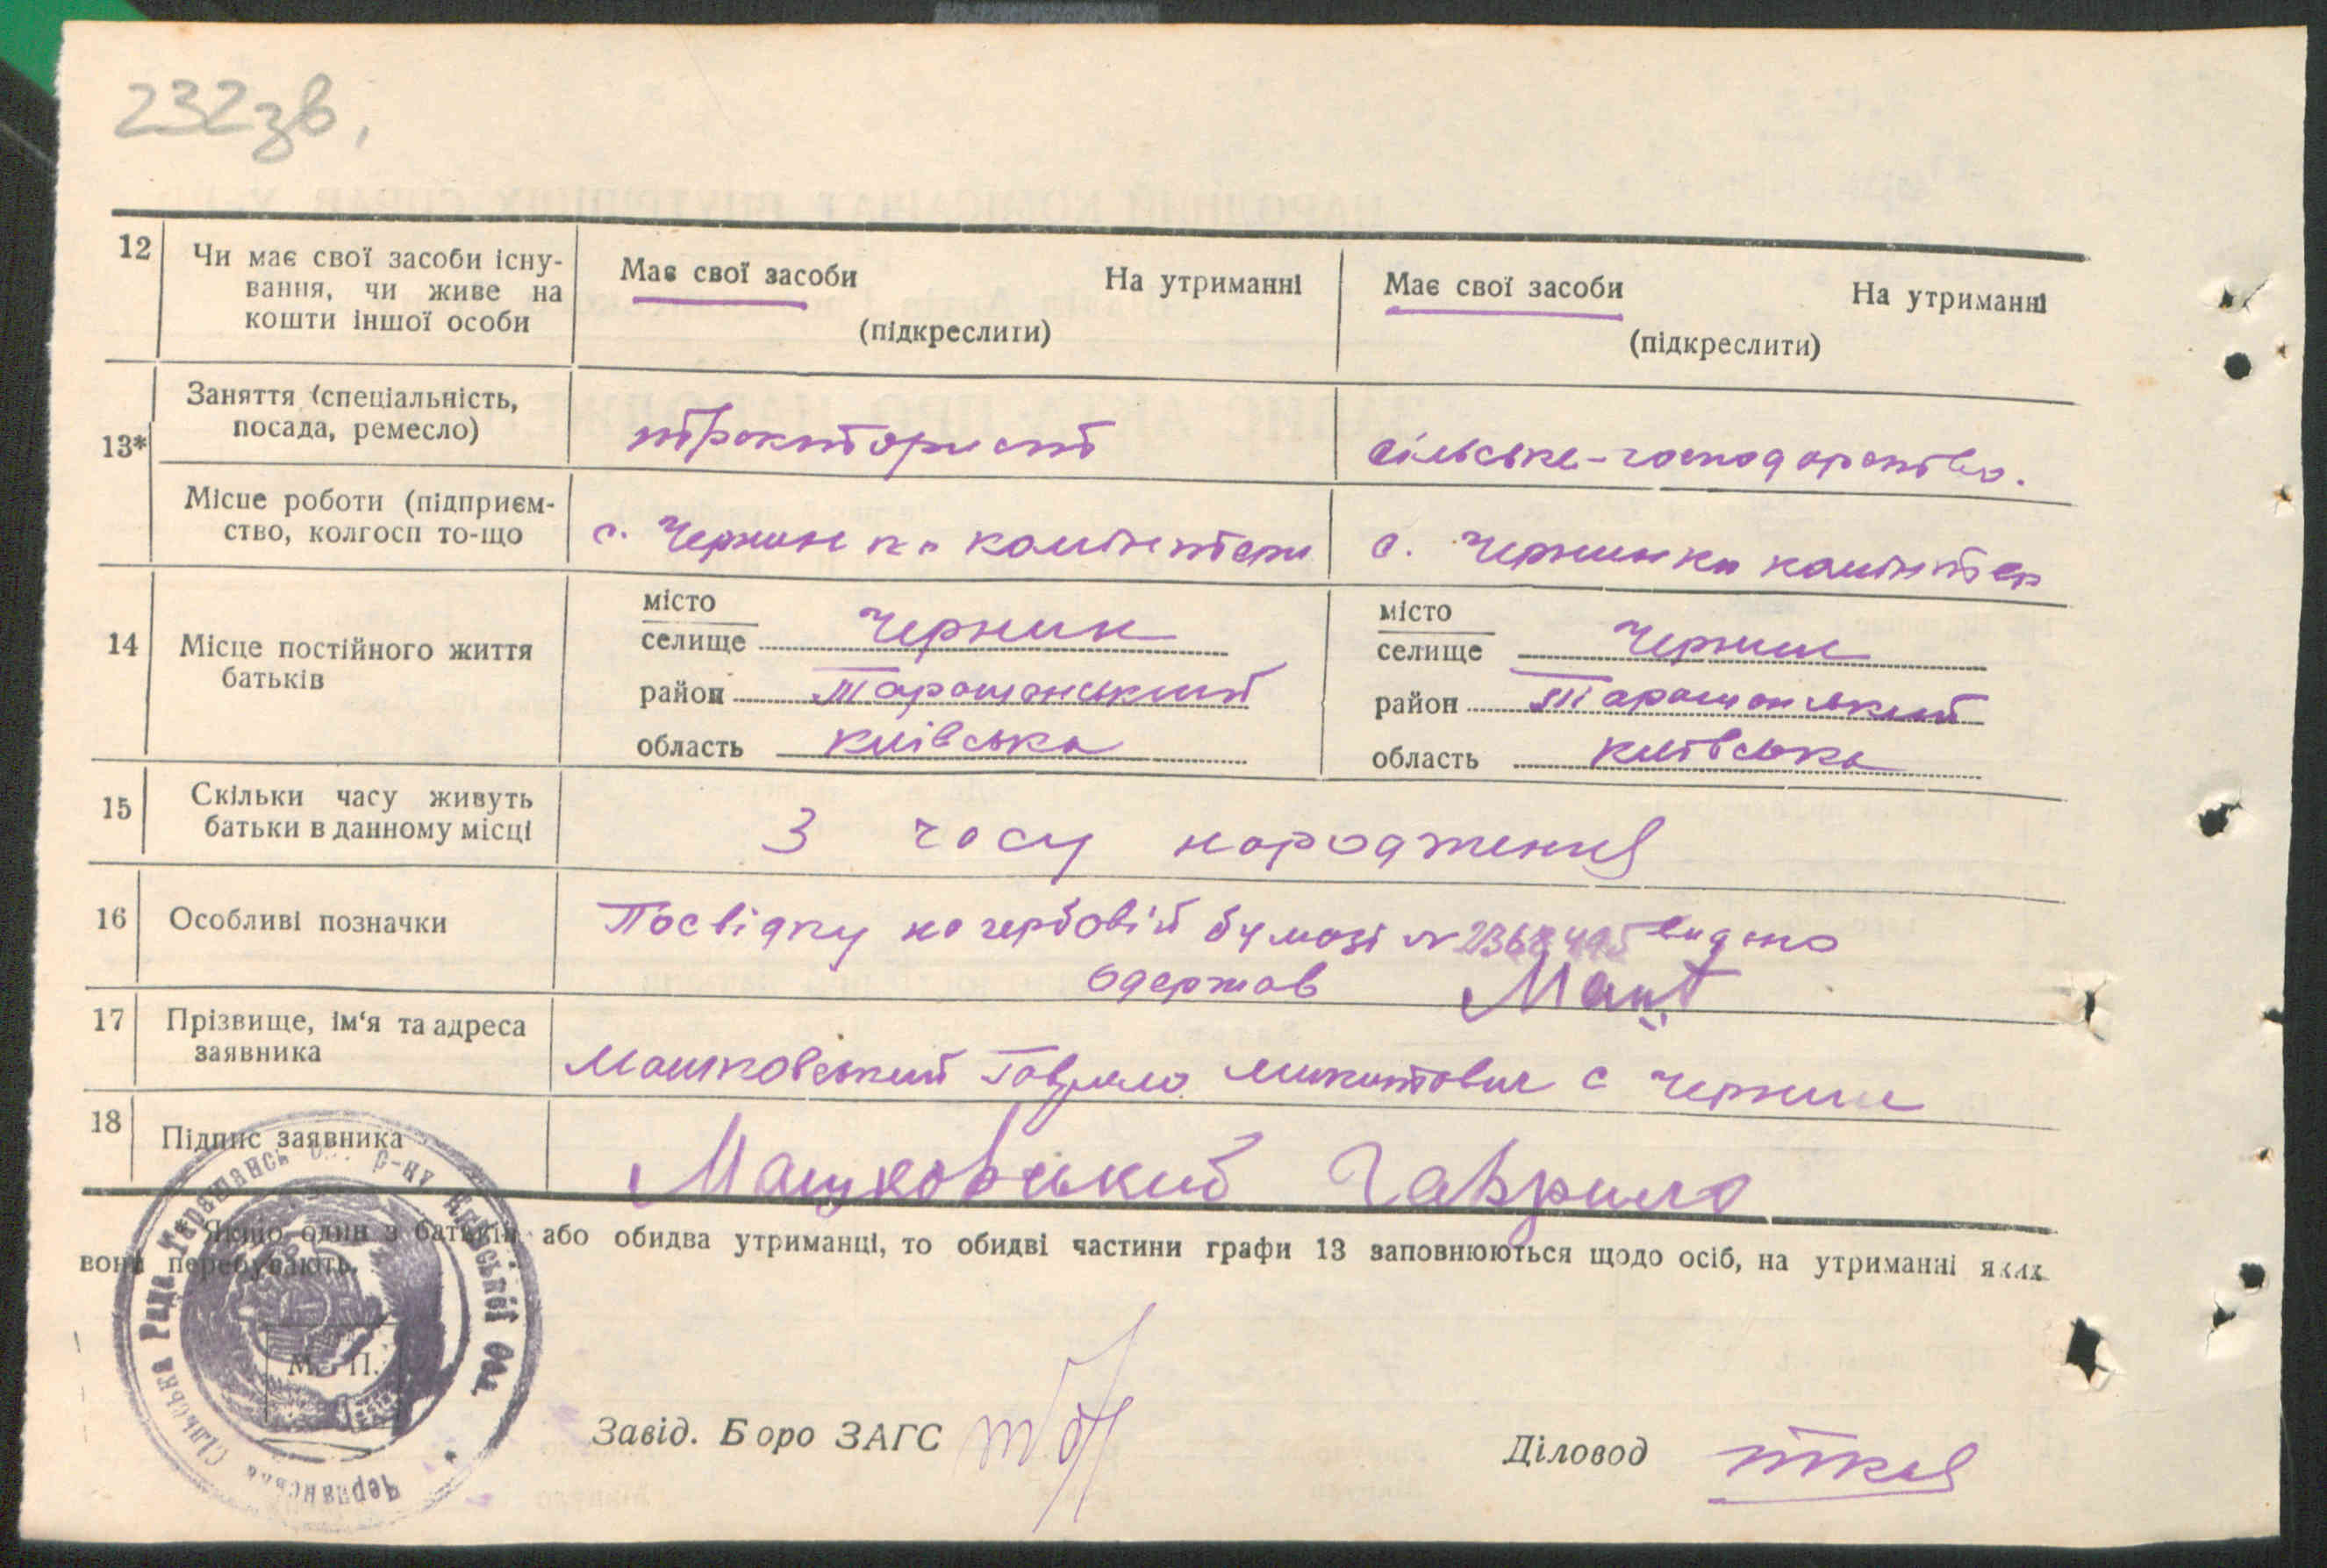 232зв,
12 Чи має свої засоби існу-
вання, чи живе на
кошти іншої особи
Має свої засоби На утриманні
(підкреслити)
Має свої засоби На утриманні
(підкреслити)
13*
Заняття (спеціальність,
посада, ремесло)
тракторист
сільське-господарство.
Місце роботи (підприєм-
ство, колгосп то-що
с. Чернин к-п комінтерн
с. Чернин кп комінтерн
14 Місце постійного життя
батьків
місто
селище Чернин
район Таращанський
область київська
місто
селище Чернин
район Таращанський
область київська
15 Скільки часу живуть
батьки в данному місці
З часу народження
16 Особливі позначки
Посвідку на гербовій бумазі № 2368495 видано
одержав Маш
17 Прізвище, ім‘я та адреса
заявника
Машковський Гаврило микитович с Чернин
18 Підпис заявника
Машковський Гаврило
Якщо один з батьків або обидва утриманці, то обидві частини графи 13 заповнюються щодо осіб, на утриманні яких
вони перебувають.
М. П.
Чернинська Сільська Рада Таращансь р-ну Київської Обл.
Завід. Боро ЗАГС
Діловод